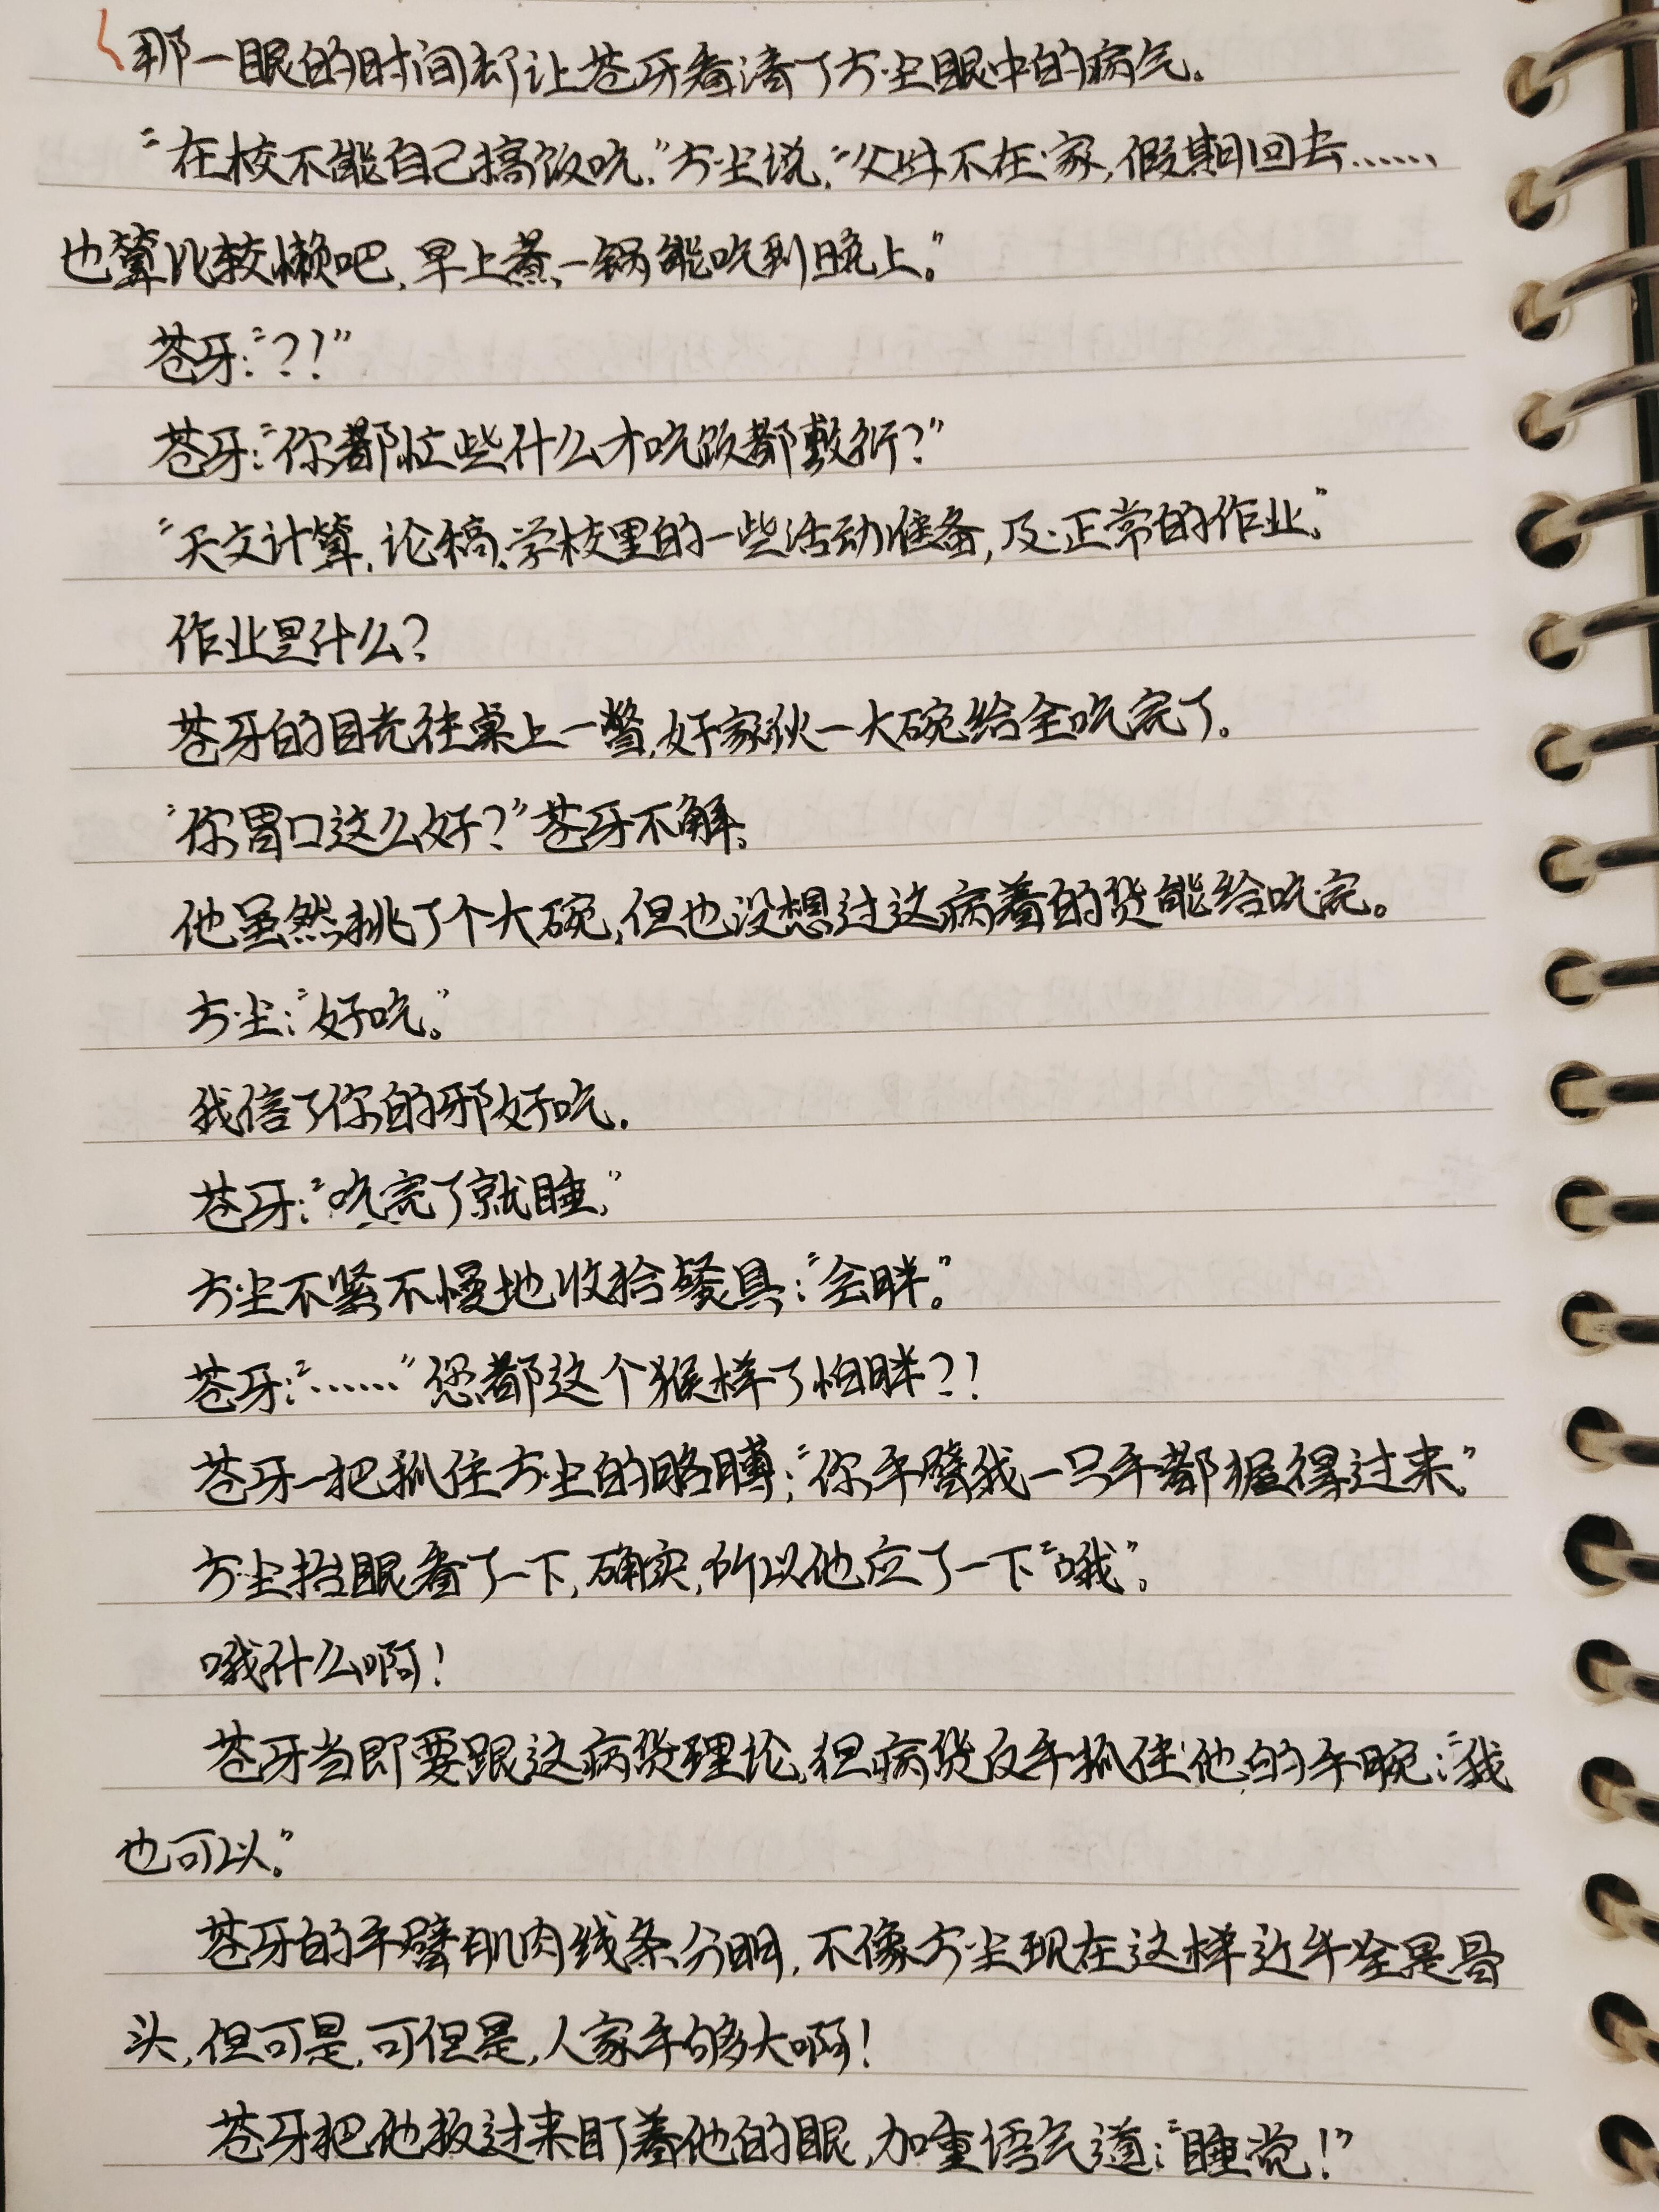 那一眼的时间却让苍牙看清了方尘眼中的病气。
“在校不能自己搞饭吃，”方尘说，“父母不在家，假期回去……
也算比较懒吧，早上煮一锅能吃到晚上。”
苍牙：“？！”
苍牙：“你都忙些什么才吃饭都敷衍？”
“天文计算，论稿，学校里的一些活动准备，及正常的作业。”
作业是什么？
苍牙的目光往桌上一瞥，好家伙一大碗给全吃完了。
“你胃口这么好？”苍牙不解。
他虽然挑了个大碗，但也没想过这病着的货能给吃完。
方尘：“好吃。”
我信了你的邪好吃。
苍牙：“吃完了就睡。”
方尘不紧不慢地收拾餐具：“会胖。”
苍牙：“……”您都这个猴样了怕胖？！
苍牙一把抓住方尘的胳膊：“你手臂我一只手都握得过来。”
方尘抬眼看了一下，确实，所以他应了一下“哦”。
哦什么啊！
苍牙当即要跟这病货理论，但病货反手抓住他的手腕：“我
也可以。”
苍牙的手臂肌肉线条分明，不像方尘现在这样近乎全是骨
头，但可是，可但是，人家手够大啊！
苍牙把他扳过来盯着他的眼，加重语气道：“睡觉！”